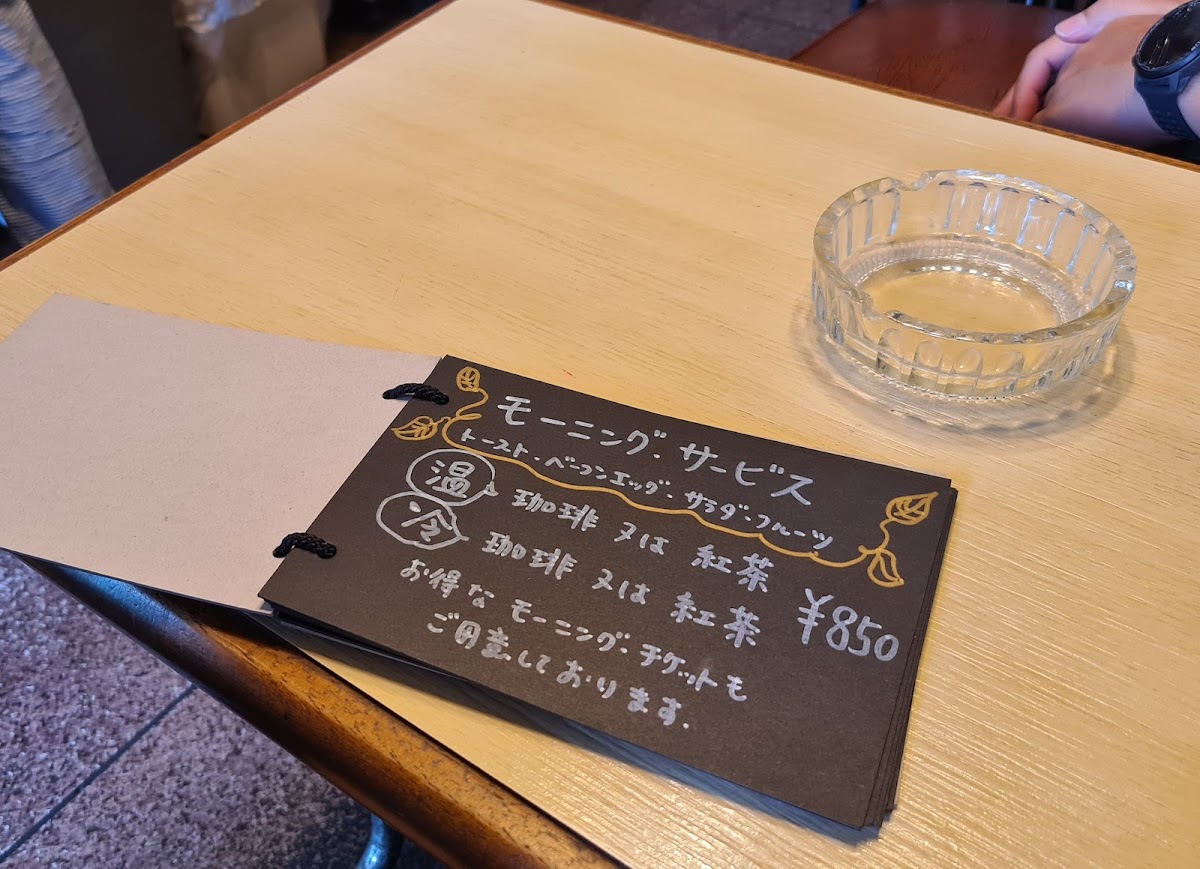 モーニング・サービス
トースト・ベーコンエッグ・サラダ・フルーツ
温 珈琲 又は 紅茶
冷 珈琲 又は 紅茶 ¥850
お得な モーニング・チケットも
ご用意しております.